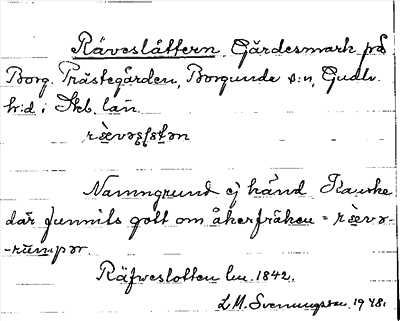 Räveslåttern Gärdesmark på
Borg. Prästegården, Borgunda s:n, Gudh.
h:d i Skb. län.
Namngrund ej känd Kanske
där funnits gott om åkerfräken = rävə-
-rumpər
Räfweslotten lm. 1842.
L.M. Svenungsson. 1948.